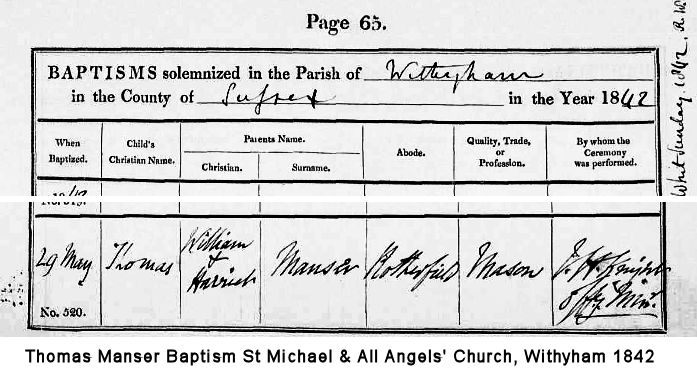 Page 65.
BAPTISMS solemnized in the Parish of Withyham
in the County of Sussex in the Year 1842
When Baptized.
Child's Christian Name.
Parents Name.
Christian.
Surname.
Abode.
Quality, Trade, or Profession.
By whom the Ceremony was performed.
29 May
Thomas
William
+
Harriet
Manser
Rotherfield
Mason
J. H. Knight
Offg. Minr.
No. 520.
Whit Sunday. 1842.
Thomas Manser Baptism St Michael & All Angels' Church, Withyham 1842